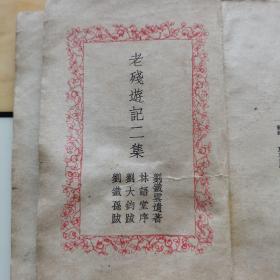 老殘遊記二集
劉鐵雲遺著
林語堂序
劉大鈞跋
劉鐵孫跋